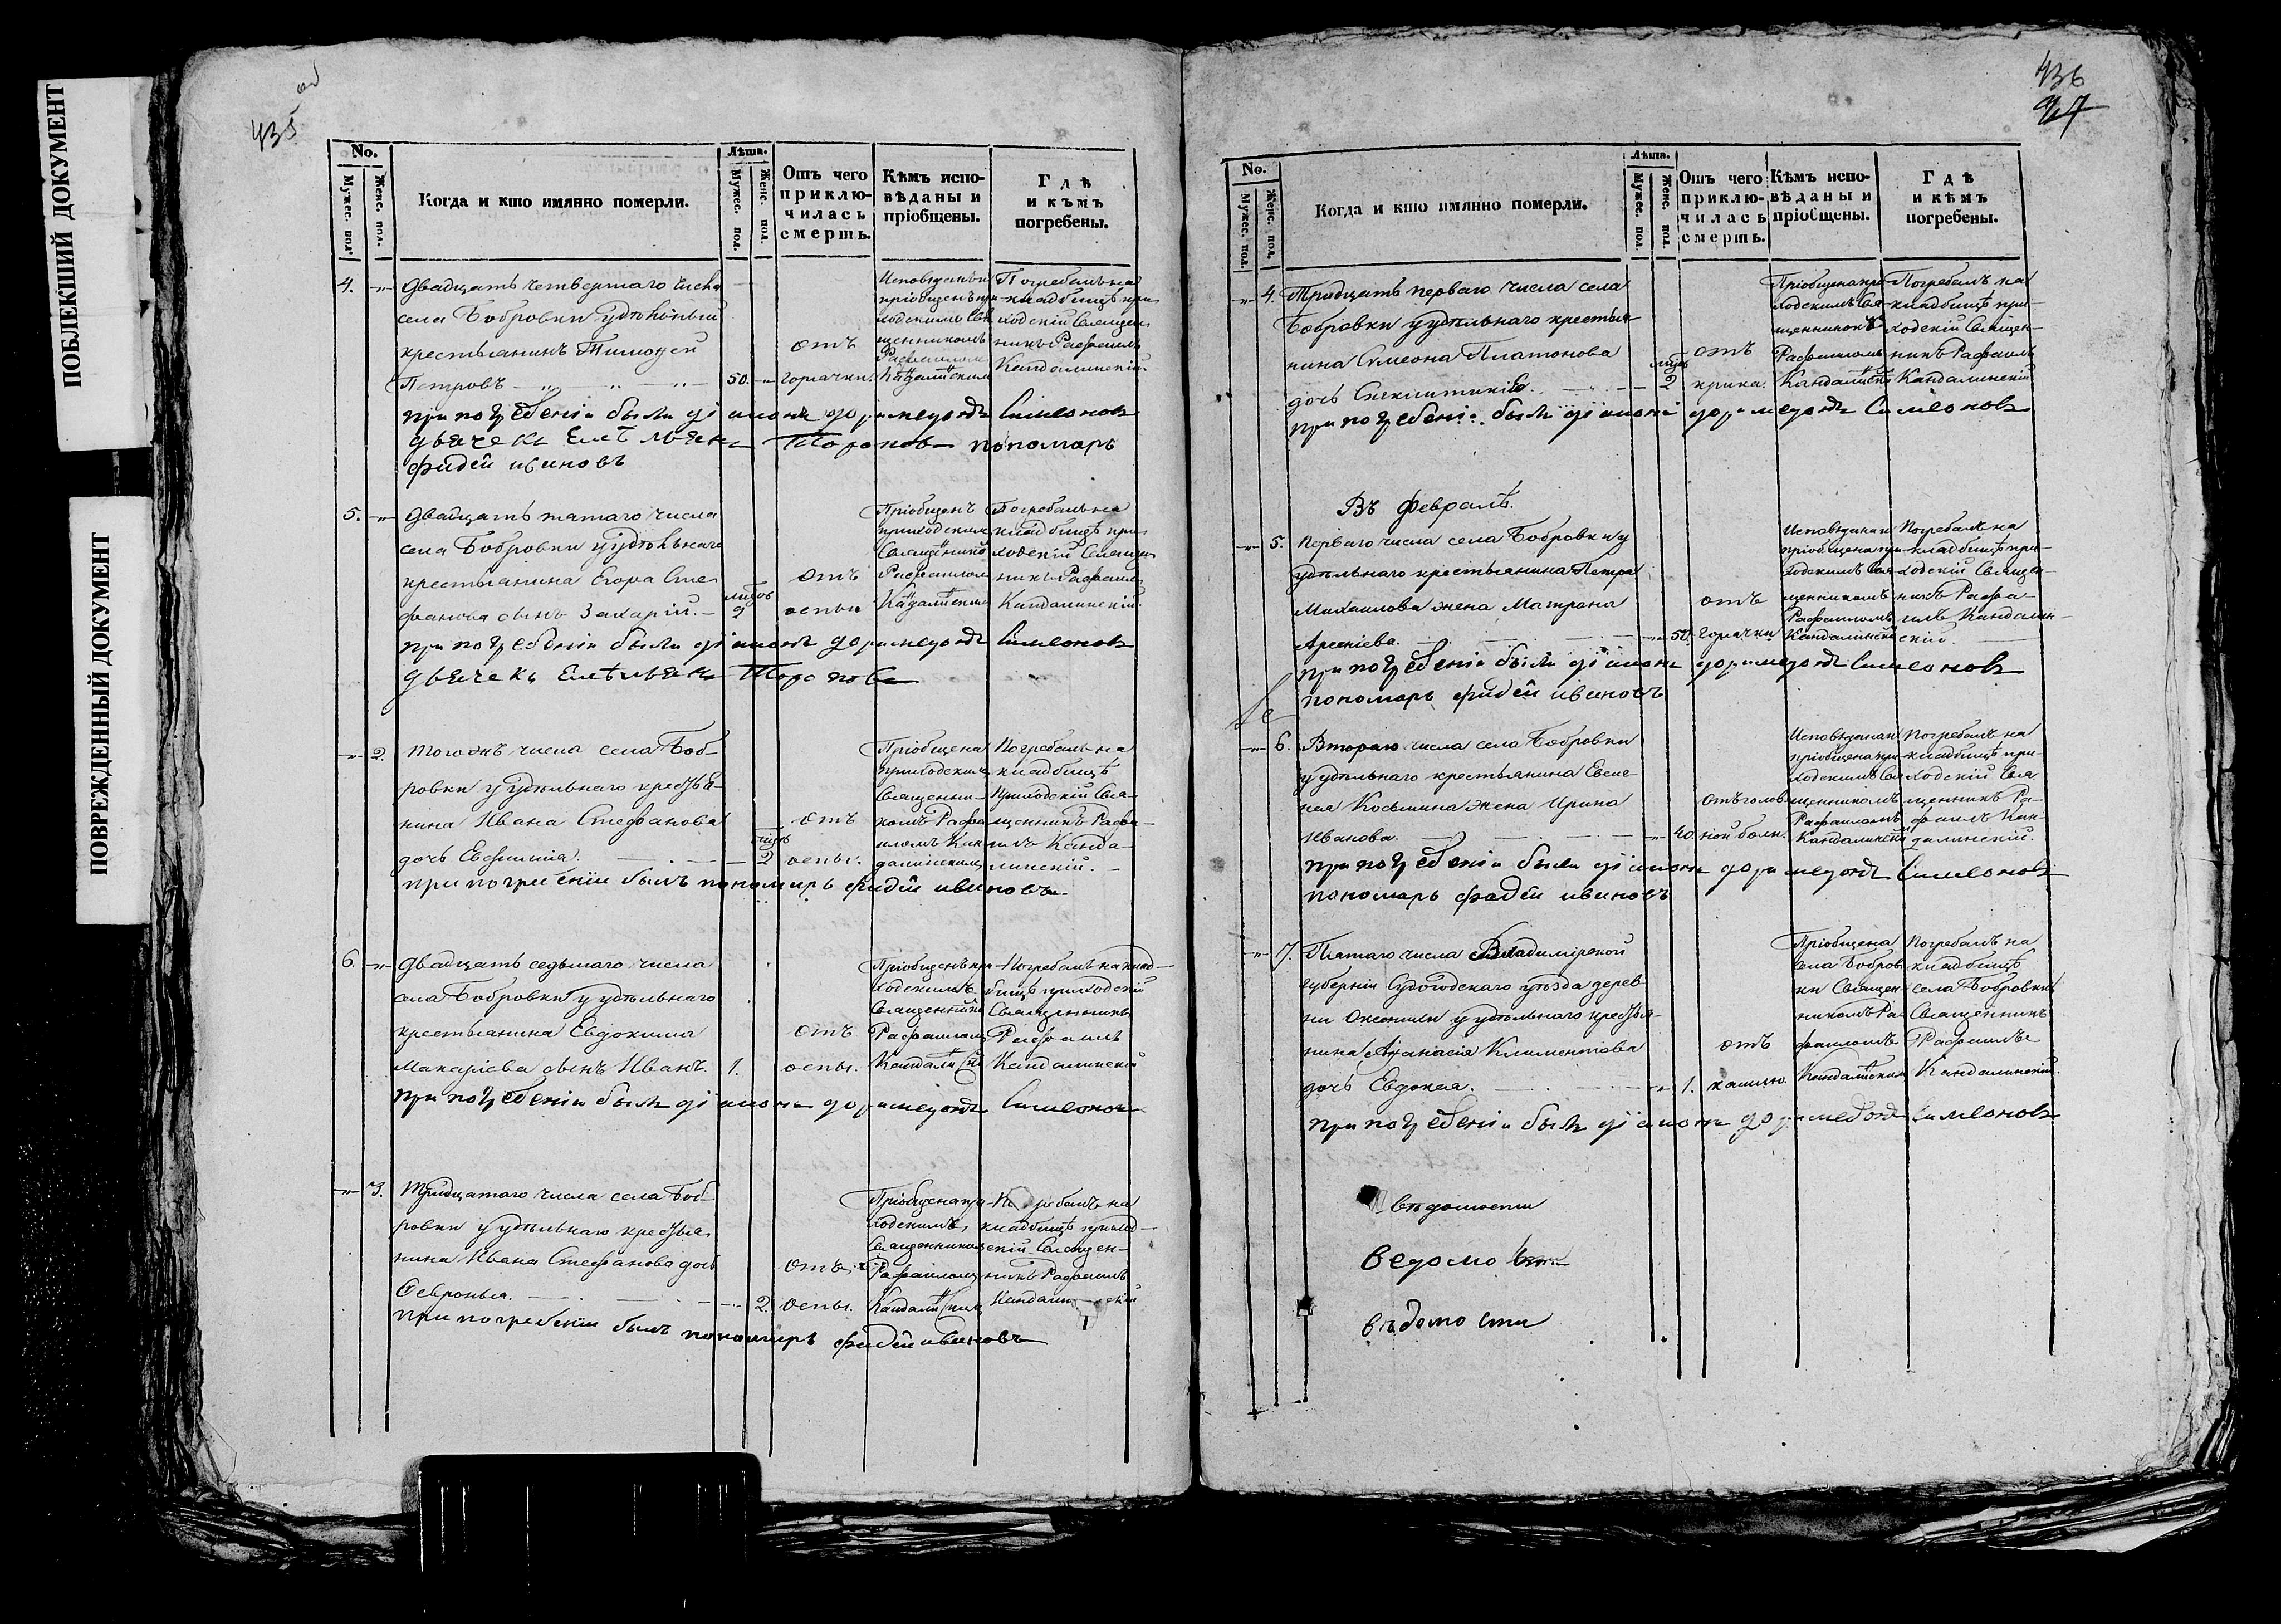 ПОБЛЕКШИЙ ДОКУМЕНТ
ПОВРЕЖДЕННЫЙ ДОКУМЕНТ
435
No.
Мужес. пол.
Женс. пол.
Когда и кто имянно померли.
Лѣта.
Мужес. пол.
Женс. пол.
Отъ чего приклю-чилась смерть.
Кѣмъ испо-вѣданы и пріобщены.
Гдѣ и кѣмъ погребены.
4.
Двадцать четвертаго числа
села Бобровки удѣльный
крестьянинъ Тимофей
Петровъ
50.
отъ
горячки.
Исповѣданъ и
пріобщенъ при
ходскимъ Свя
щенникомъ
Рафаиломъ
Кандалинскимъ
Погребалъ на
кладбищѣ при-
ходскій Священ
никъ Рафаилъ
Кандалинскій.
при погребеніи были діаконъ доримедонтъ Симеоновъ
дьячекъ Емельянъ Топоновъ пономарь
фадей ивановъ
5.
Двадцать пятаго числа
села Бобровки удѣльнаго
крестьянина Егора Сте
фанова сынъ Захарій.
2
отъ
оспы
Пріобщенъ
приходскимъ
Священнико
Рафаиломъ
Кандалинскимъ
Погребалъ на
кладбищѣ при-
ходскій Священ
никъ Рафаилъ
Кандалинскій.
при погребеніи были діаконъ доримедонтъ Симеоновъ
дьячекъ Емельянъ
2.
Того жъ числа села Боб-
ровки удѣльнаго крестья-
нина Ивана Стефанова
дочь Евфимія.
2
отъ
оспы.
Пріобщена
приходскимъ
Священни-
комъ Рафа
иломъ Кан
далинскимъ
Погребалъ на
кладбищѣ
приходскій Свя-
щенникъ Рафа-
илъ Канда-
линскій.
при погребеніи былъ пономарь фадей ивановъ
6.
Двадцать седьмаго числа
села Бобровки удѣльнаго
крестьянина Евдокима
Макаріева сынъ Иванъ.
1.
отъ
оспы.
Пріобщенъ при
ходскимъ
Священникомъ
Рафаиломъ
Погребалъ на клад-
бищѣ приходскій
Священникъ
Рафаилъ
Кандалинскій
при погребеніи былъ діаконъ доримедонтъ Симеоновъ
3.
Тридцатаго числа села Боб-
ровки удѣльнаго крестья
нина Ивана Стефанова дочь
Февронья.
2.
отъ
оспы.
Пріобщена при
ходскимъ
Священникомъ
Рафаиломъ
Погребалъ на
кладбищѣ приход-
скій Священ-
никъ Рафаилъ
Кандалинскій
при погребеніи былъ пономарь фадей ивановъ
436
No.
Мужес. пол.
Женс. пол.
Когда и кто имянно померли.
Лѣта.
Мужес. пол.
Женс. пол.
Отъ чего приклю-чилась смерть.
Кѣмъ испо-вѣданы и пріобщены.
Гдѣ и кѣмъ погребены.
4.
Тридцать перваго числа села
Бобровки удѣльнаго крестья-
нина Симеона Платонова
дочь
2
отъ
крика.
Пріобщена при
ходскимъ Свя-
щенникомъ
Рафаиломъ
Погребалъ на
кладбищѣ при-
ходскій Священ-
никъ Рафаилъ
Кандалинскій
при погребеніи былъ діаконъ доримедонтъ Симеоновъ
Въ Февралѣ.
5.
Перваго числа села Бобровки у
удѣльнаго крестьянина Петра
Михаилова жена Матрона
Арсеніева.
50.
отъ
горячки
Исповѣдана и
пріобщена при-
ходскимъ Свя
щенникомъ
Рафаиломъ
Кандалински
Погребалъ на
кладбищѣ при-
ходскій Священ-
никъ Рафа-
илъ Кандалин-
скій.
при погребеніи были діаконъ доримедонтъ Симеоновъ
пономарь фадей ивановъ
6.
Втораго числа села Бобровки
удѣльнаго крестьянина Евсе-
нея Косьмина жена Ирина
Иванова.
40.
отъ голов
ной боли.
Исповѣдана и
пріобщена при
ходскимъ Свя
щенникомъ
Рафаиломъ
Кандалински
Погребалъ на
кладбищѣ при-
ходскій Свя
щенникъ Ра-
фаилъ Кан-
далинскій.
при погребеніи были діаконъ доримедонтъ Симеоновъ
пономарь фадей ивановъ
7.
Пятаго числа Владимірской
губерніи Судогодскаго уѣзда дерев
ни удѣльнаго крестья-
нина Афанасія Климентова
дочь Евдокея.
1.
отъ
кашлю
Пріобщена
села Бобров
ки Священ-
никомъ Ра-
фаиломъ
Кандалинскимъ
Погребалъ на
кладбищѣ
села Бобровки
Священникъ
Рафаилъ
Кандалинскій.
при погребеніи былъ діаконъ доримедонтъ Симеоновъ
вѣдомости
ведомо
вѣдомости